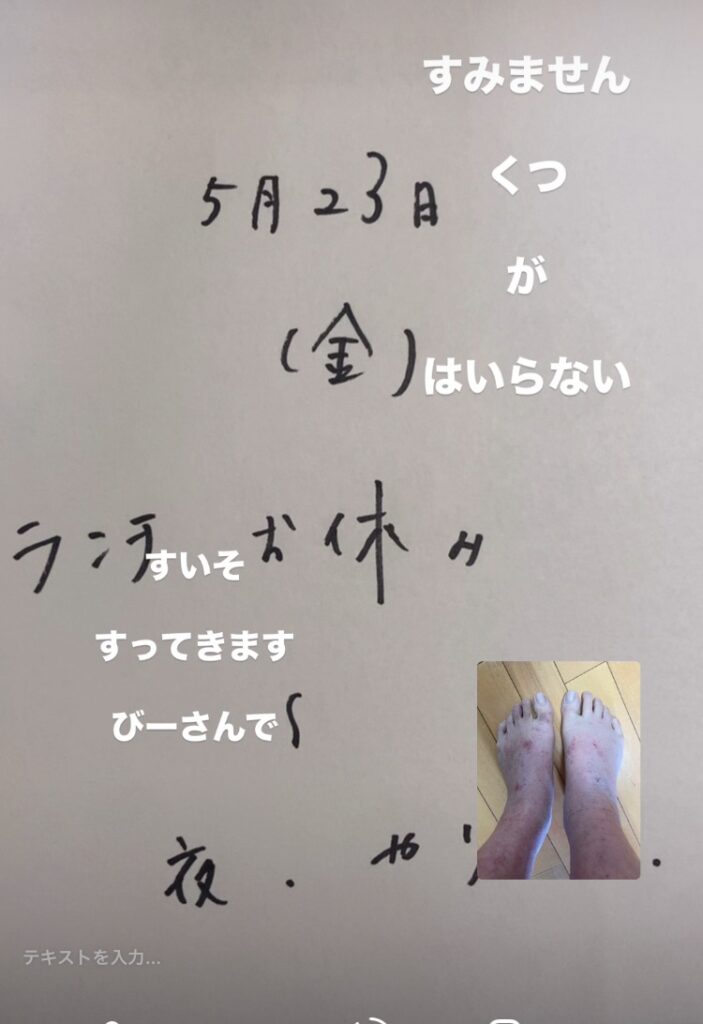 すみません
くつ
が
はいらない
5月23日
(金)
ランチ お休み
すいそ
すってきます
びーさんで
夜.
テキストを入力...